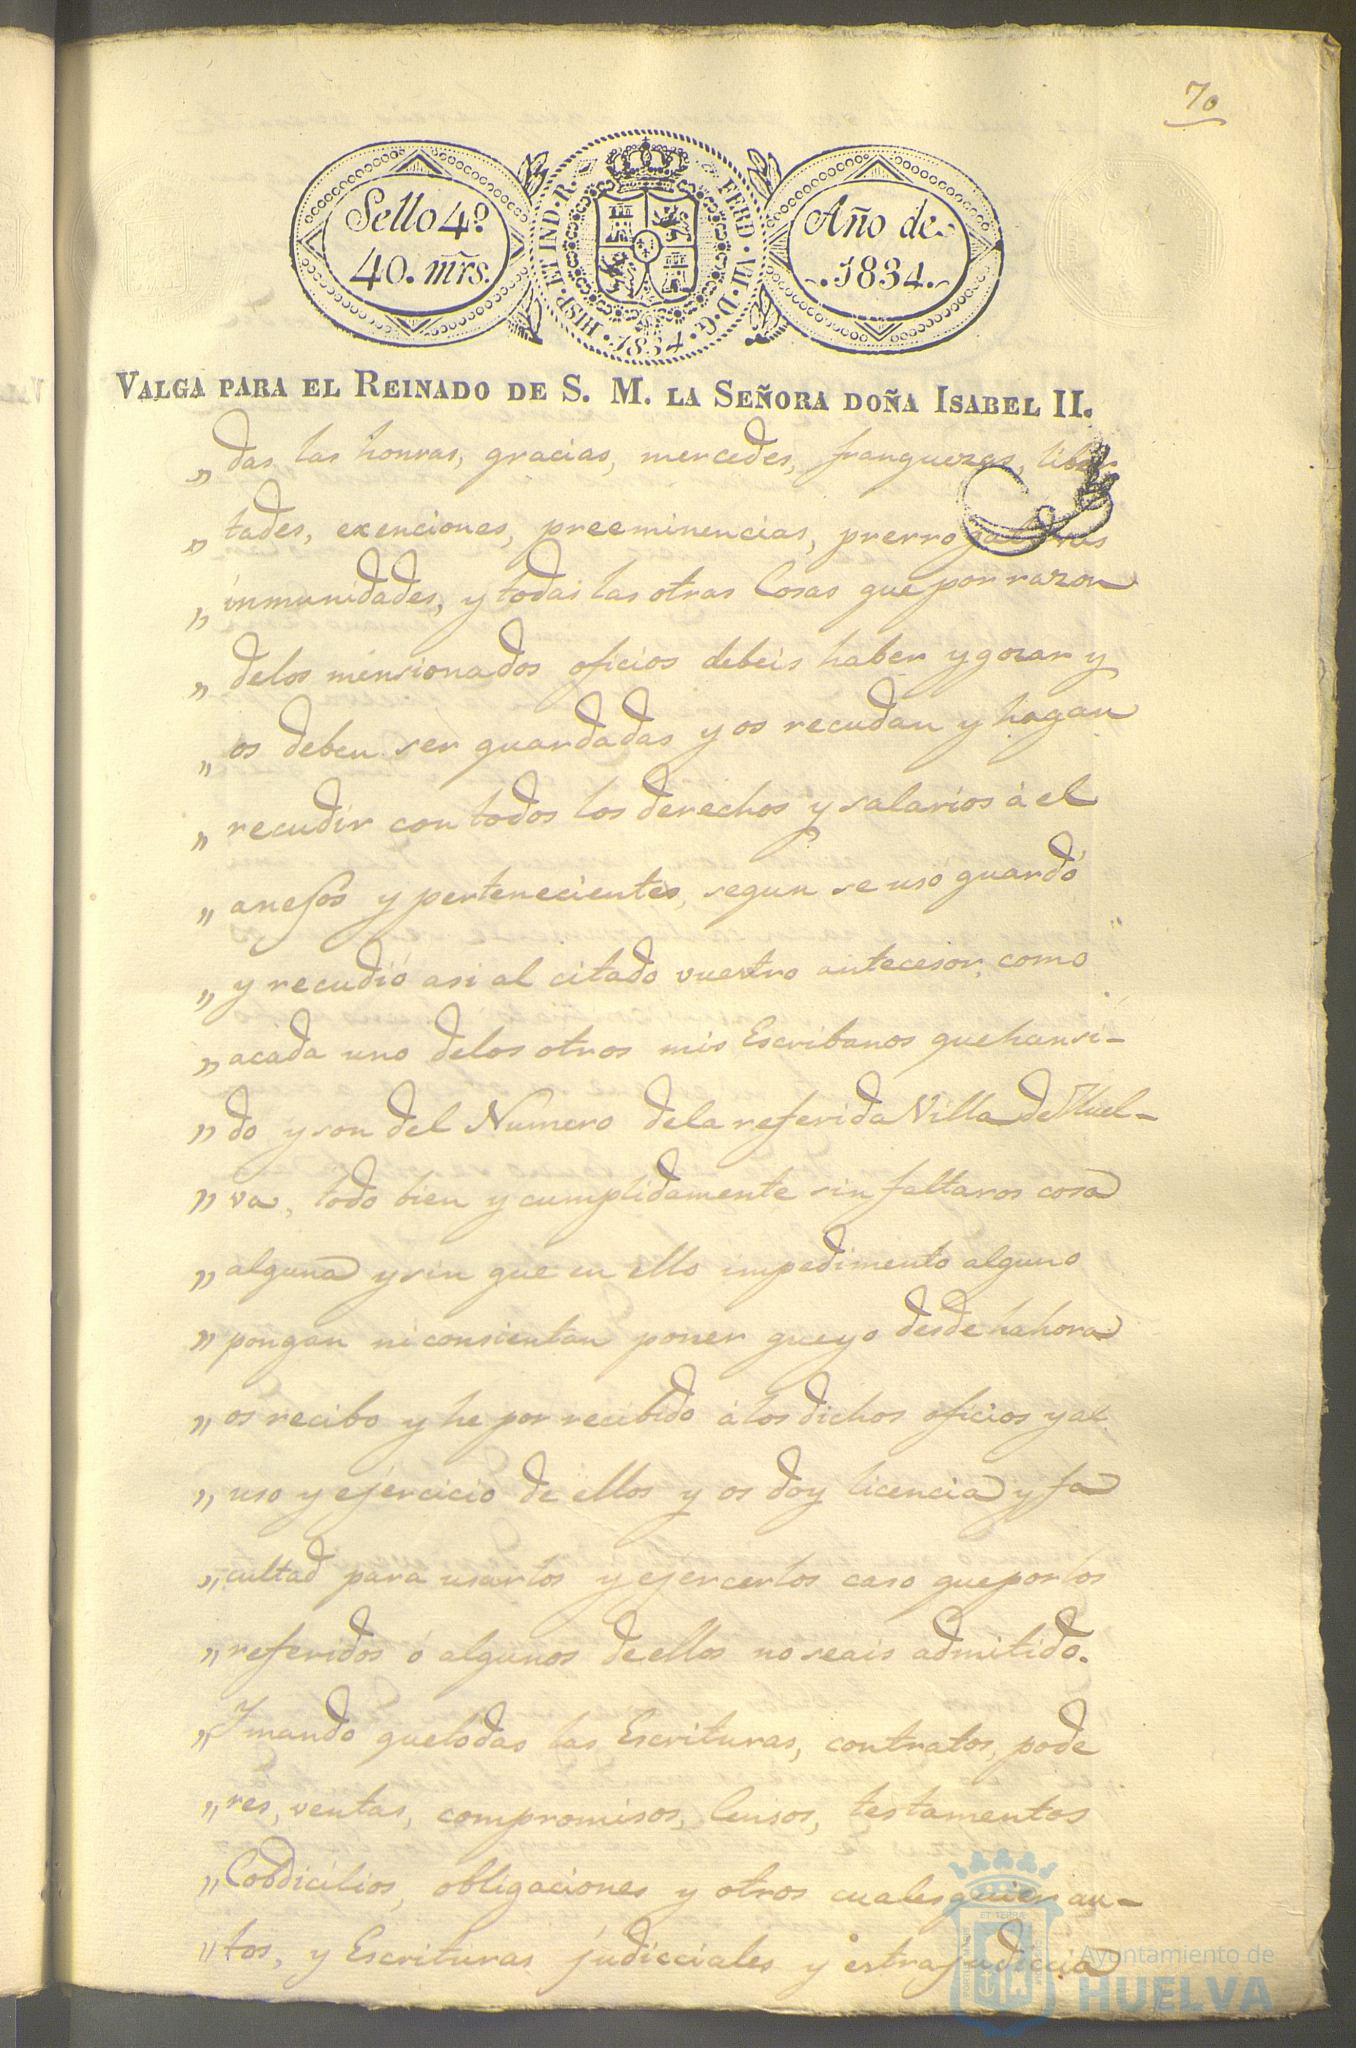 70
Sello 4º
40. mrs.
HISP. ET IND. R.
FERD. VII. D. G.
. 1834 .
Año de
.1834.
VALGA PARA EL REINADO DE S. M. LA SEÑORA DOÑA ISABEL II.
" das las honras, gracias, mercedes, franquezas, liber
" tades, exenciones, preeminencias, prerrogativas
" inmunidades, y todas las otras Cosas que por razon
" delos mensionados oficios debeis haber y gozar y
" os deben ser guardadas y os recudan y hagan
" recudir con todos los derechos y salarios á el
" anesos y pertenecientes, segun se usó guardó
" y recudió asi al citado vuestro antecesor, como
" acada uno delos otros mis Escribanos que han si-
" do y son del Numero dela referida Villa de Huel-
" va, todo bien y cumplidamente sin faltaros cosa
" alguna y sin que en ello impedimento alguno
" pongan ni consientan poner que yo desde hahora
" os recibo y he por recibido á los dichos oficios y al
" uso y ejercicio de ellos y os doy licencia y fa
" cultad para usarlos y ejercerlos caso que por los
" referidos ó algunos de ellos no seais admitido.
" Y mando que todas las Escrituras, contratos, pode
" res, ventas, compromisos, Censos, testamentos
" Cobdicilios, obligaciones y otros cualesquier au-
" tos, y Escrituras judicciales y estrajudiccia
Ayuntamiento de
HUELVA